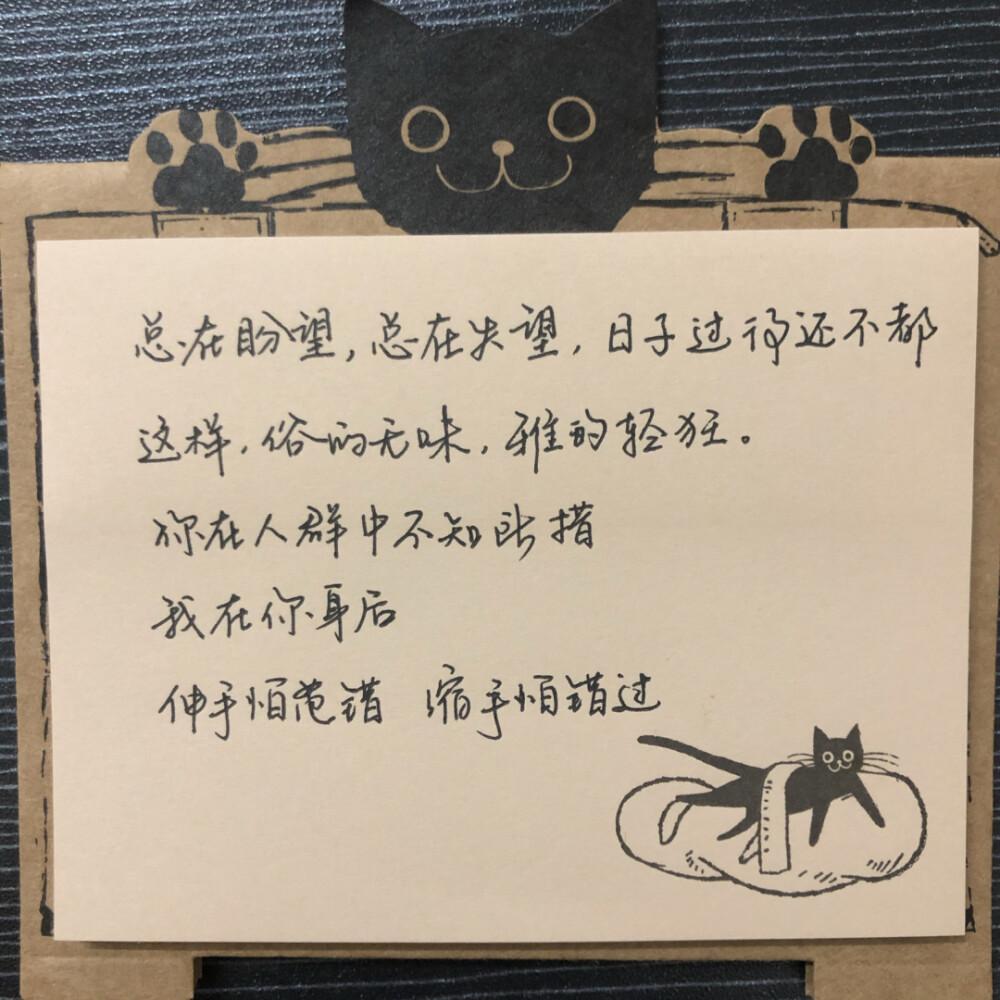 总在盼望,总在失望,日子过得还不都
这样,俗的无味,雅的轻狂。
你在人群中不知所措
我在你身后
伸手怕范错 缩手怕错过